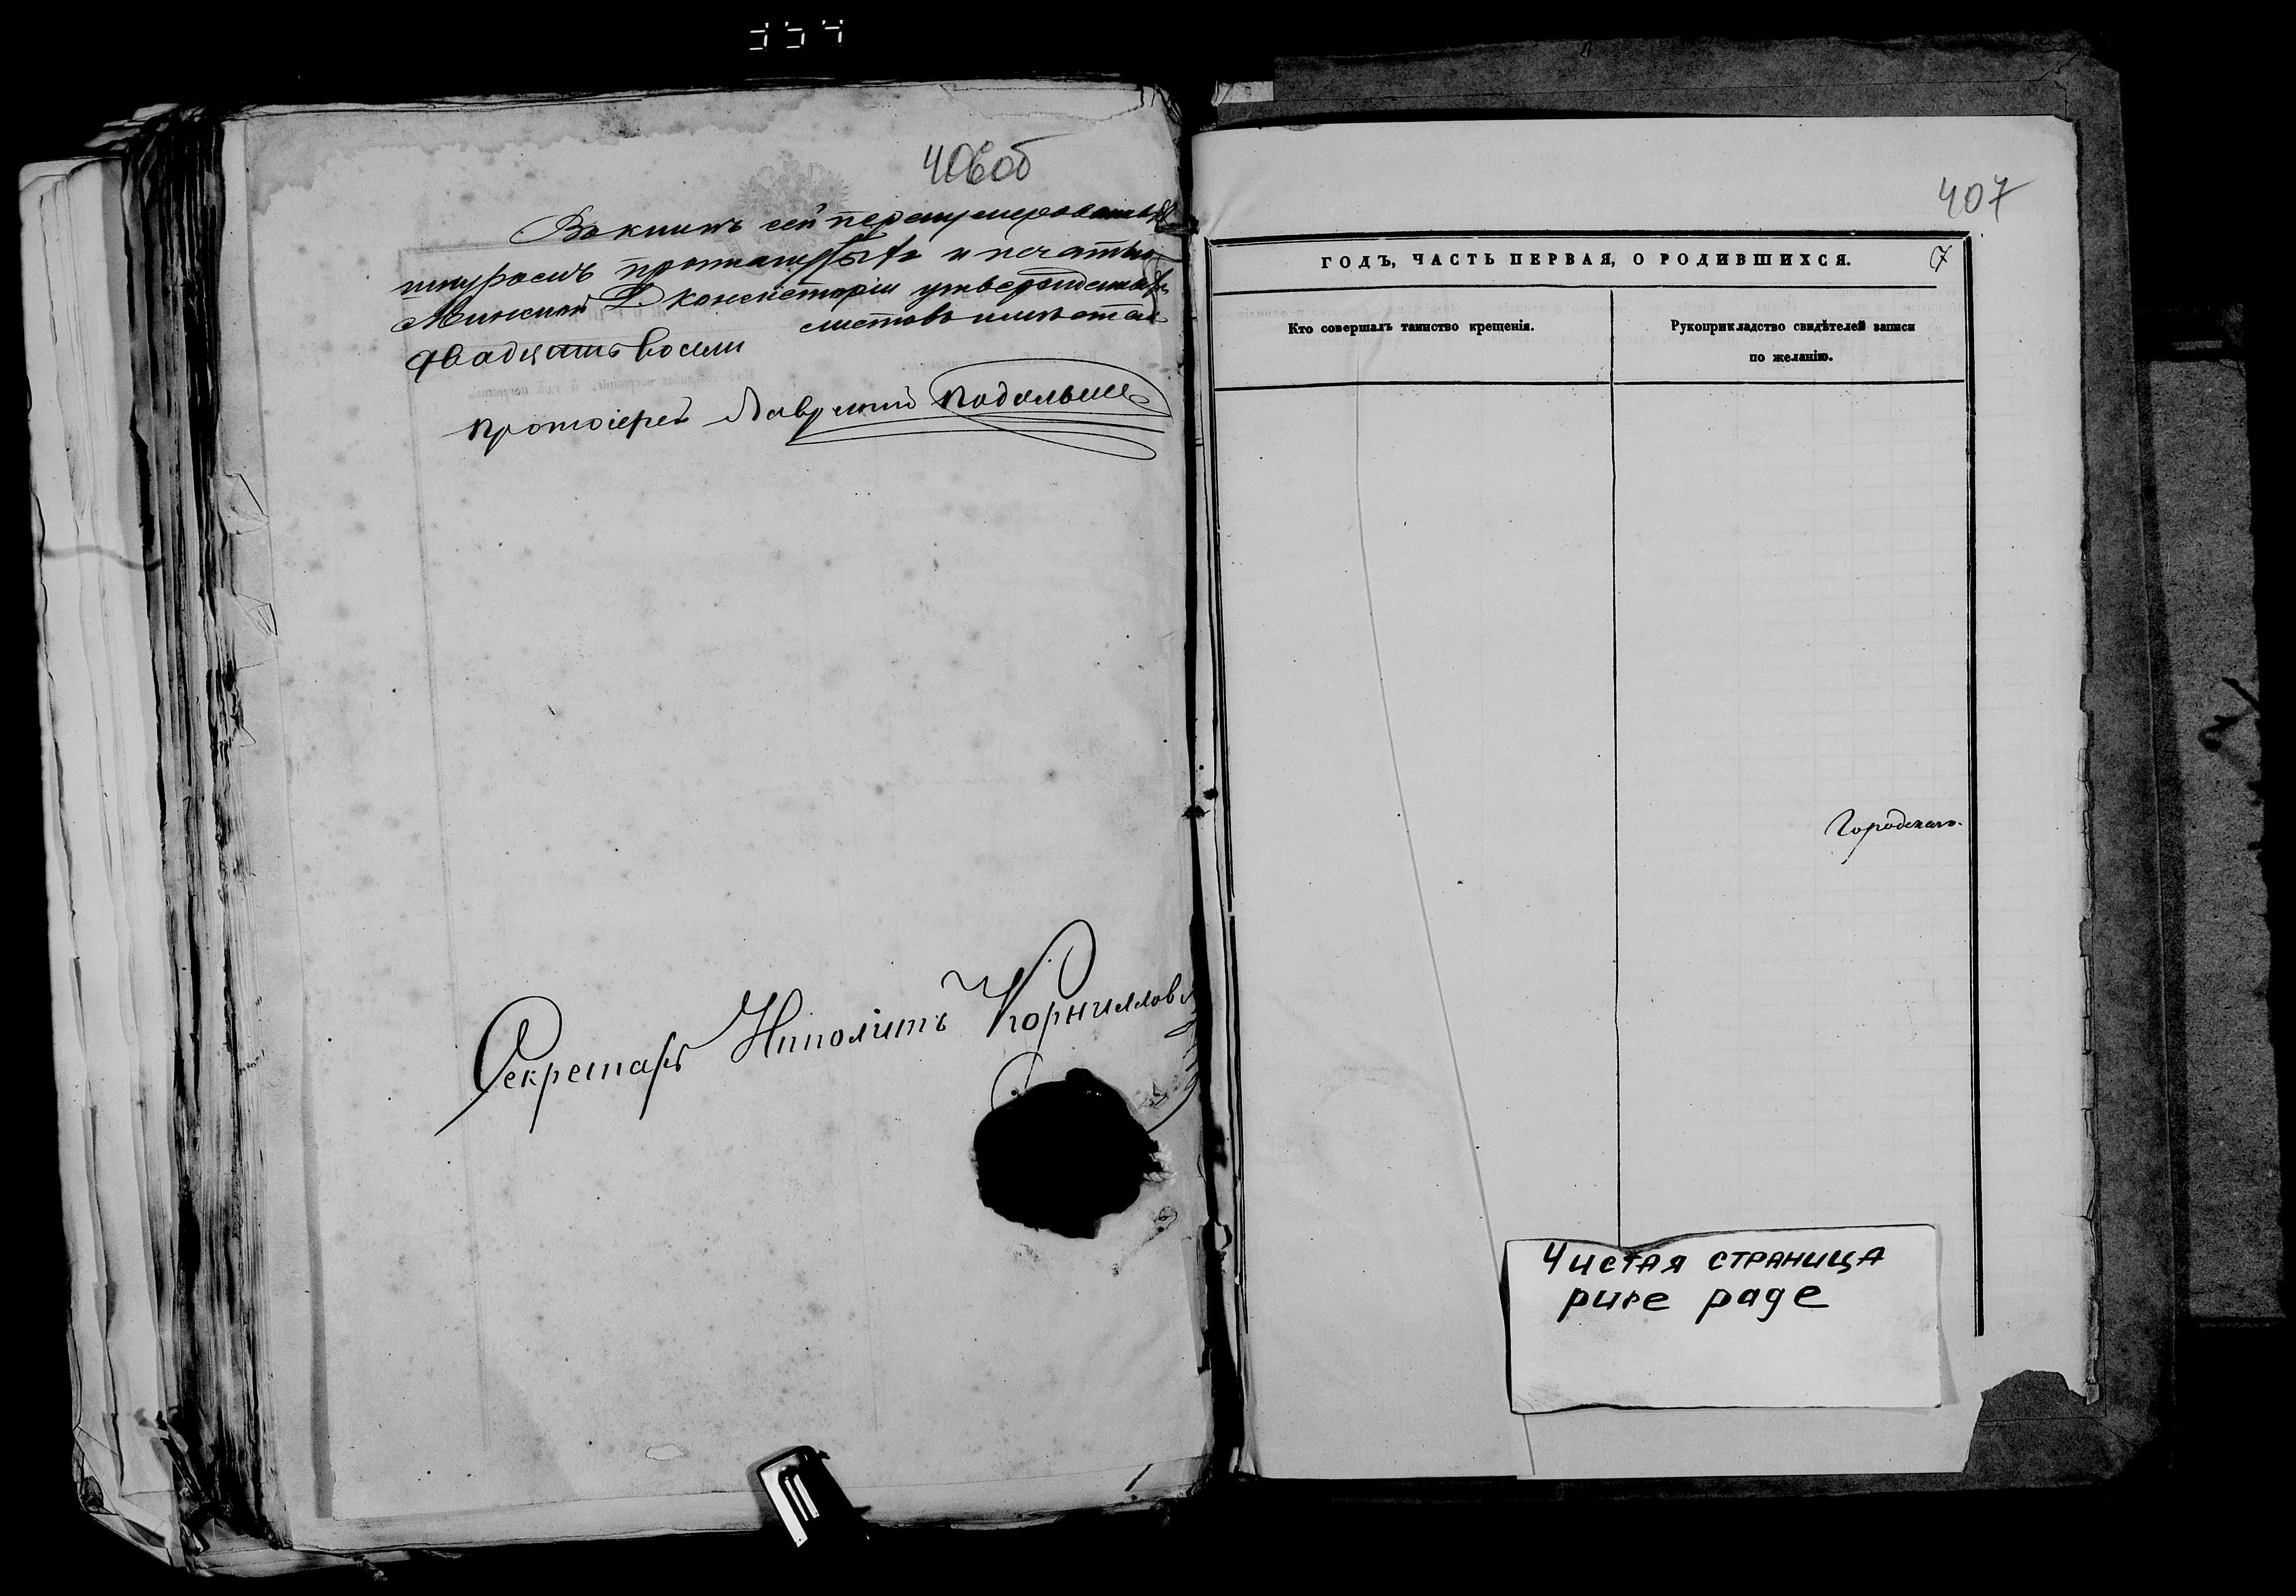 406об
Въ книгѣ сей перенумерованныхъ
шнуромъ прошнурованныхъ и печатью
Минской Д. Консисторіи утвержденныхъ
листовъ имѣется
двадцать восемь
Протоіерей Лаврентій Подольскій
Секретарь Ипполитъ Корниловъ
407
ГОДЪ, ЧАСТЬ ПЕРВАЯ, О РОДИВШИХСЯ.
7
Кто совершалъ таинство крещенія.
Рукоприкладство свидѣтелей записи
по желанію.
Городскаго.
Чистая страница
pure page